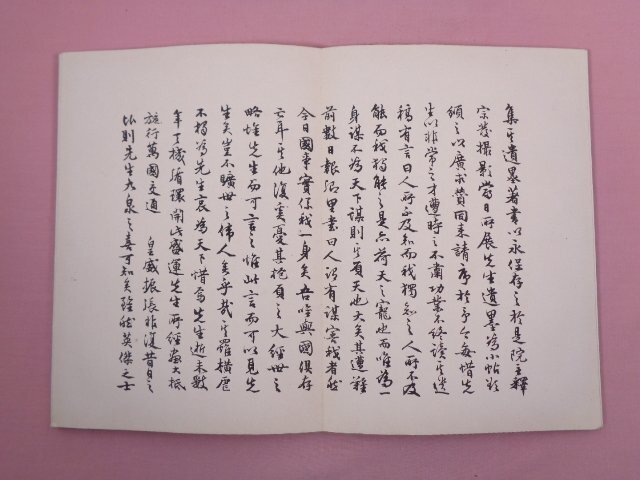 集其遺墨著書以永保存之於是院主釋
宗般撮影當日所展先生遺墨為小帖欲
頒之以廣求賛同来請序於予々每惜先
生以非常之才遭時之不肅功業不終讀其遺
稿有言曰人所不及知而我獨知之人所不及
能而我獨能之是亦荷天之寵也而唯為一
身謀不為天下謀則其負天也大矣其遭難
前數日報郷里書曰人謂有謀害我者然
今日國事實係我一身矣吾唯與國倶存
亡耳其他復奚憂其抱負之大經世之
略唯先生而可言之惟此言而可以見先
生矣豈不曠世之偉人矣乎哉其罹橫虐
不獨為先生哀為天下惜焉先生逝未數
年丁機循環開此盛運先生所經畫大抵
施行萬國交通 皇威振張非復昔日之
比則先生九泉之喜可知矣雖然英傑之士